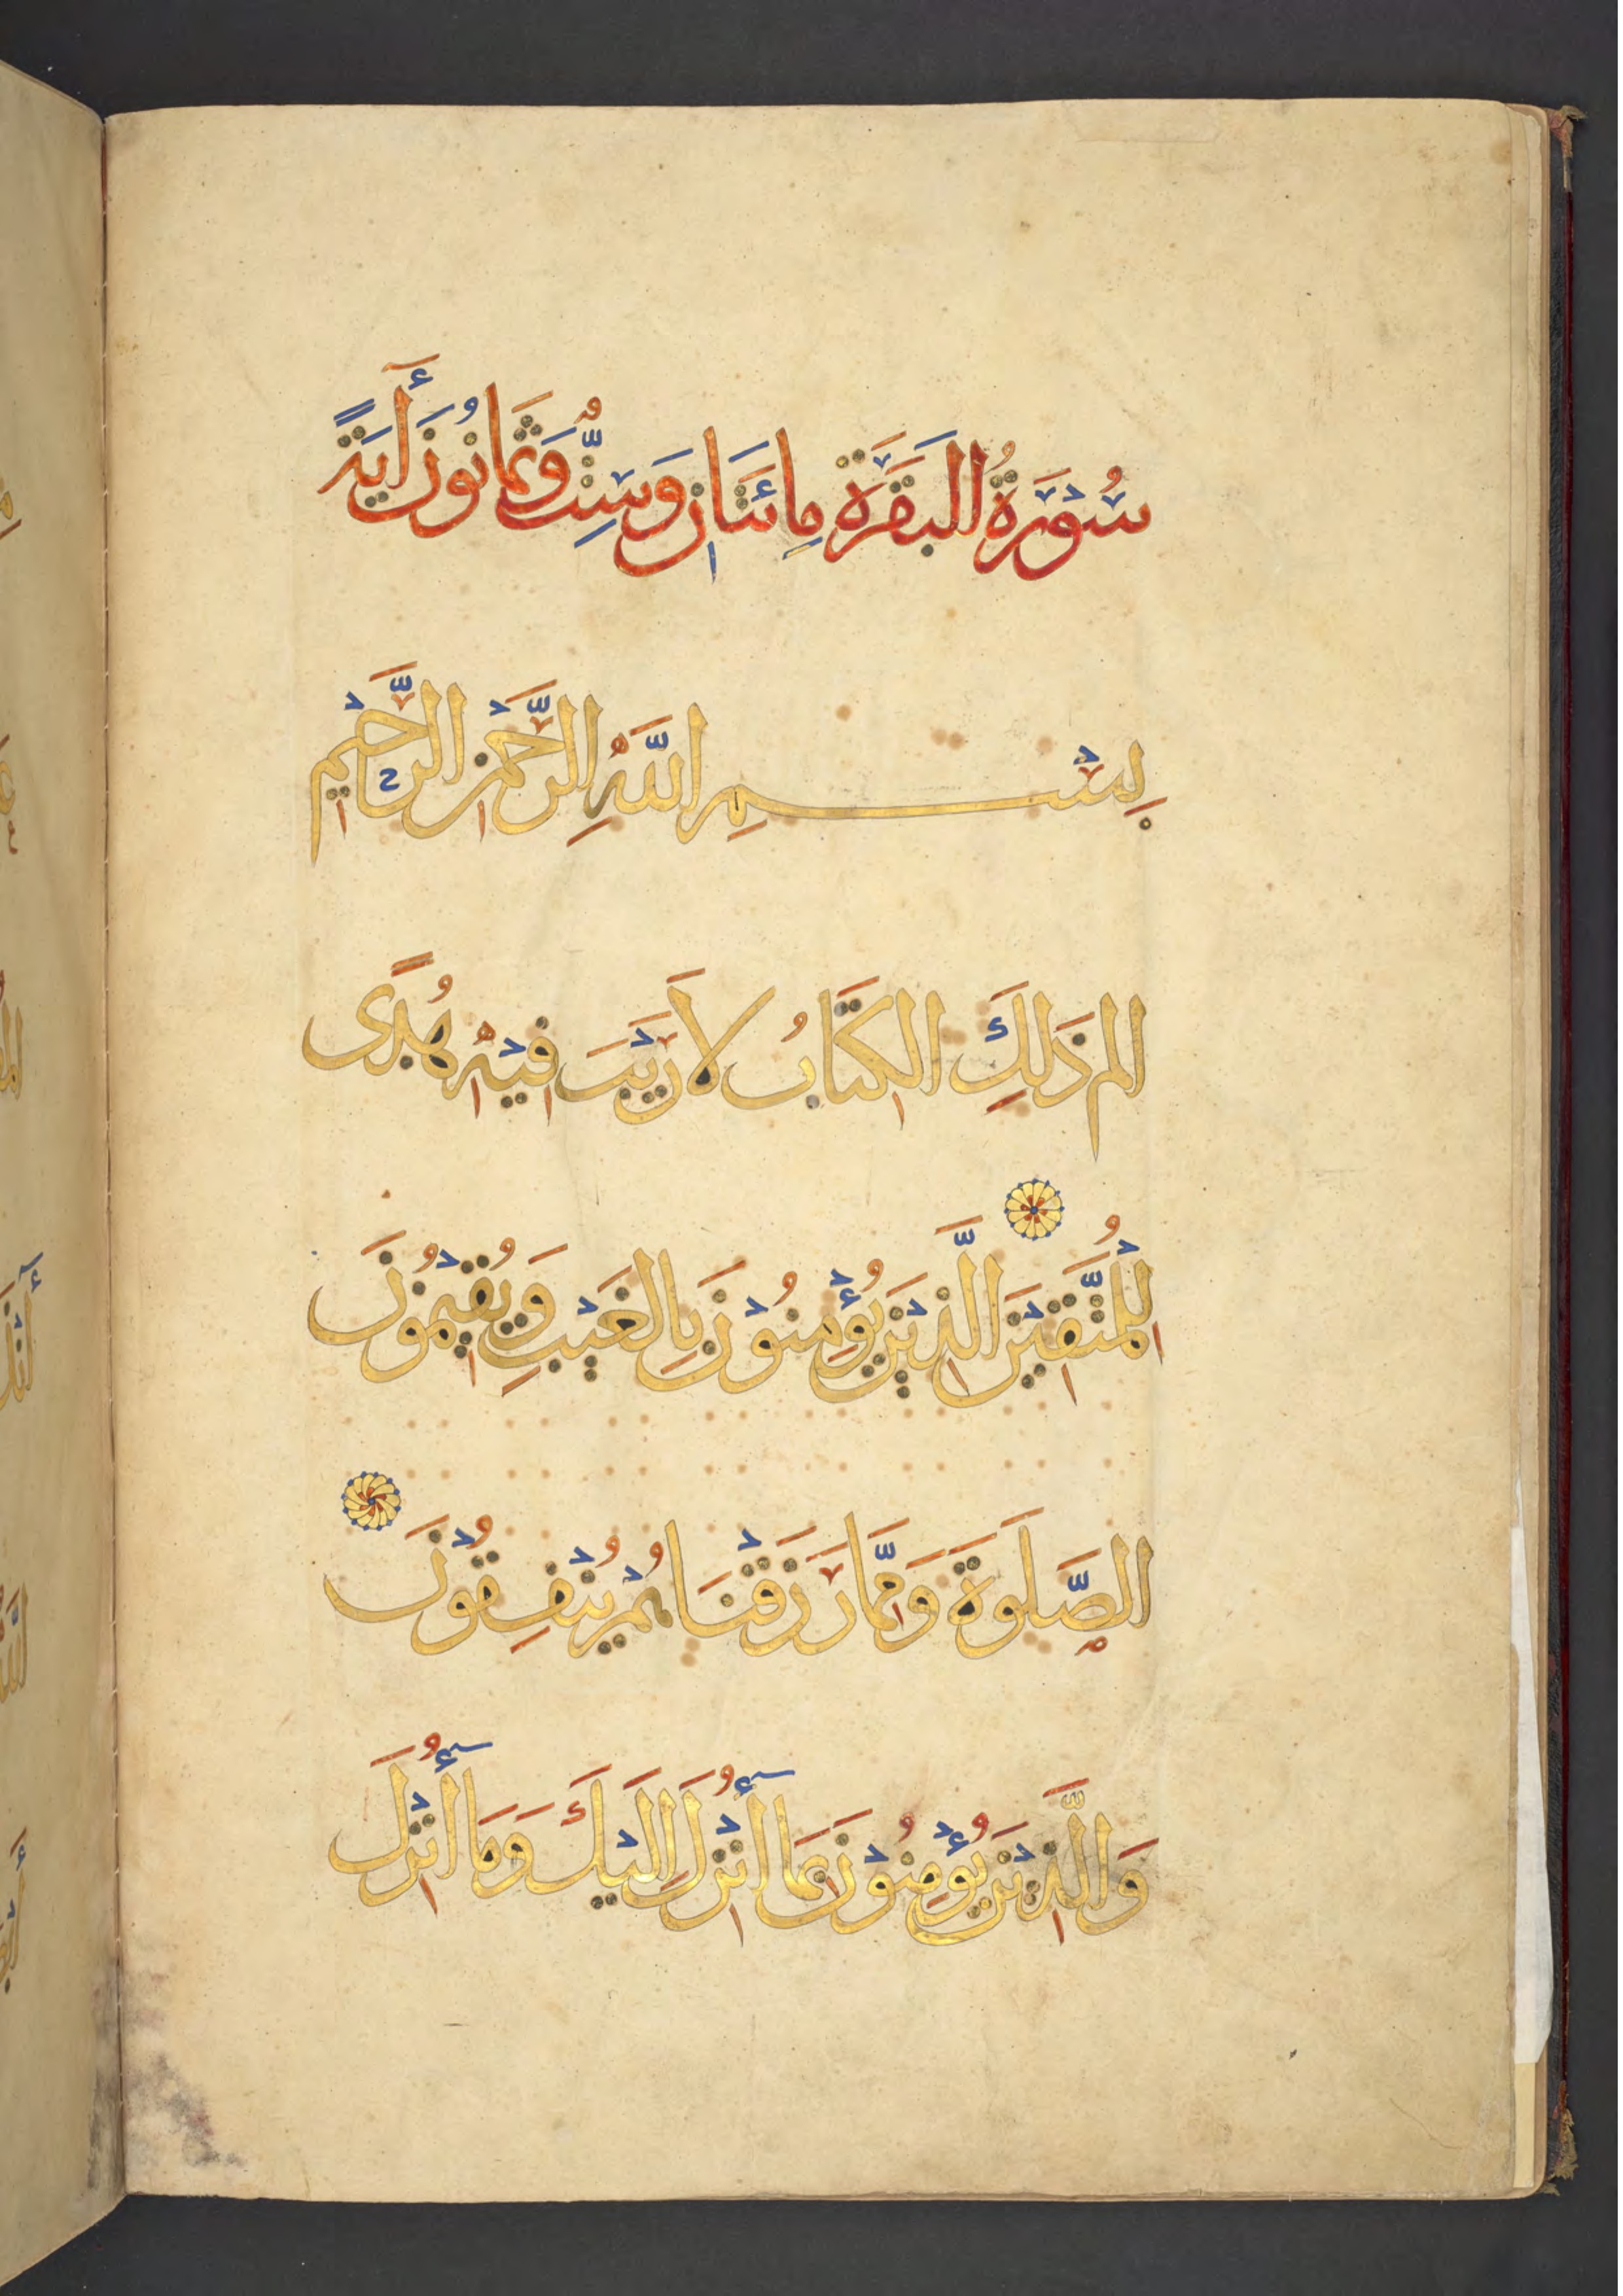 سُوْرَةُ الْبَقَرَةِ مِائَتَانِ وَسِتٌّ وَثَمَانُونَ أٓيَةً
بِسْمِ اللَّهِ الرَّحْمٰنِ الرَّحِيْمِ
الم ذَلِكَ الكِتَابُ لَا رَيْبَ فِيْهِ هُدًى
لِلْمُتَّقِيْنَ الَّذِيْنَ يُؤْمِنُوْنَ بِالغَيْبِ وَيُقِيْمُوْنَ
الصَّلَوةَ وَمِمَّا رَزَقْنَاهُمْ يُنْفِقُوْنَ
وَالَّذِيْنَ يُؤْمِنُوْنَ بِمَا أُنْزِلَ إِلَيْكَ وَمَا أُنْزِلَ